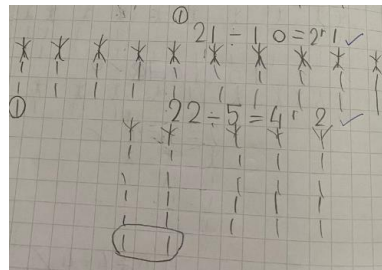 ① 21 ÷ 10 = 2 r 1 ✓
① 22 ÷ 5 = 4 r 2 ✓